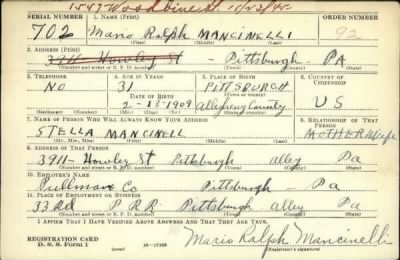 1547 Woodbine St. 11/23/42
SERIAL NUMBER 1. NAME (Print) ORDER NUMBER
702 Mario Ralph MANCINELLI 92
(First) (Middle) (Last)
2. ADDRESS (Print)
3911 Howley St - Pittsburgh - PA
(Number and street or R. F. D. number) (Town) (County) (State)
3. TELEPHONE 4. AGE IN YEARS 5. PLACE OF BIRTH 6. COUNTRY OF CITIZENSHIP
NO 31 PITTSBURGH
DATE OF BIRTH (Town or county)
2-13-1909 Allegheny County U S
(Exchange) (Number) (Mo.) (Day) (Yr.) (State or country)
7. NAME OF PERSON WHO WILL ALWAYS KNOW YOUR ADDRESS 8. RELATIONSHIP OF THAT PERSON
STELLA MANCINELL MOTHER Wife
(Mr., Mrs., Miss) (First) (Middle) (Last)
9. ADDRESS OF THAT PERSON
3911- Howley St Pittsburgh alley Pa
(Number and street or R. F. D. number) (Town) (County) (State)
10. EMPLOYER'S NAME
Pullman Co Pittsburgh - Pa
11. PLACE OF EMPLOYMENT OR BUSINESS
33 Rd P R R. Pittsburgh alley Pa
(Number and street or R. F. D. number) (Town) (County) (State)
I AFFIRM THAT I HAVE VERIFIED ABOVE ANSWERS AND THAT THEY ARE TRUE.
REGISTRATION CARD
D. S. S. Form 1 (over) 16-17105 Mario Ralph Mancinelli
(Registrant's signature)